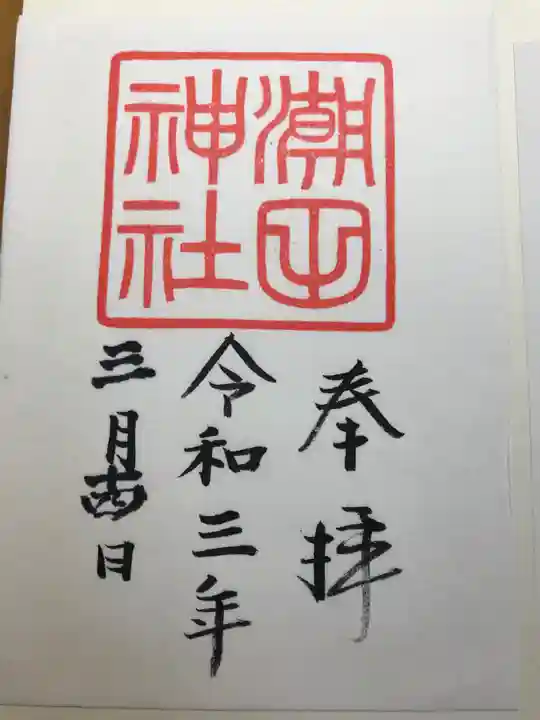 潮田
神社
奉拝
令和三年
三月十四日